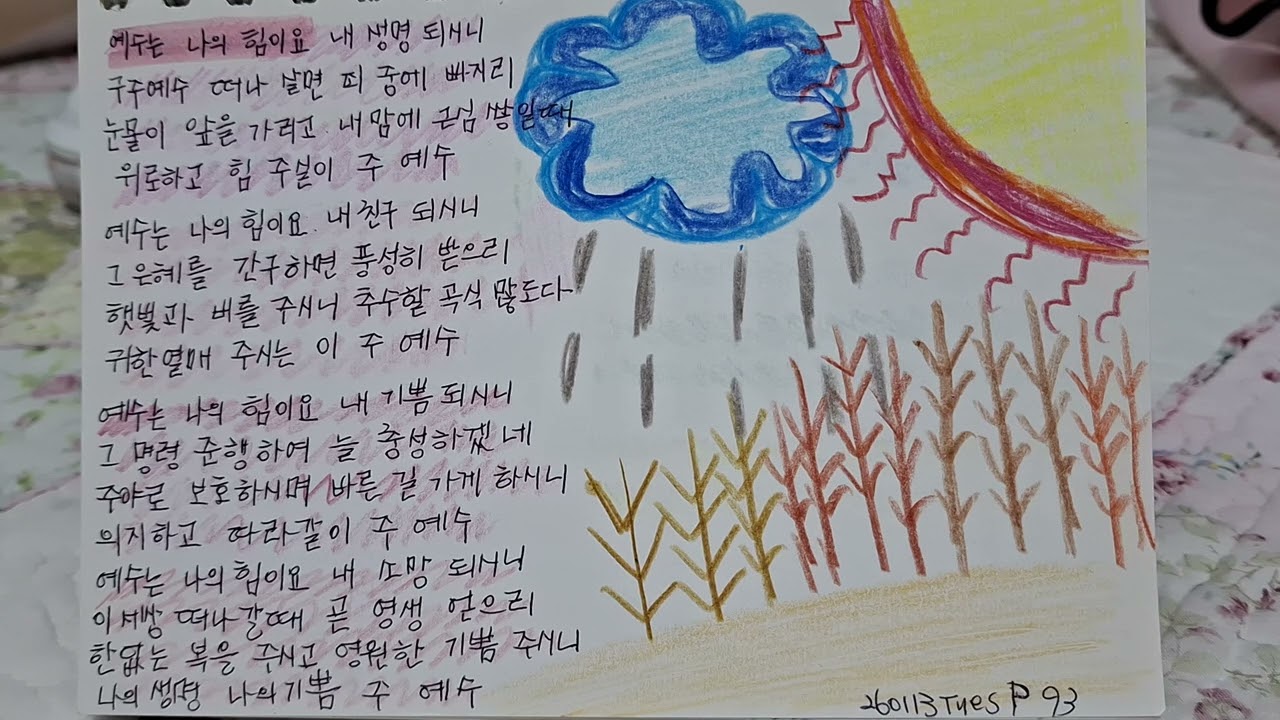 예수는 나의 힘이요 내 생명 되시니
구주예수 떠나 살면 죄 중에 빠지리
눈물이 앞을 가리고 내 맘에 근심 쌓일때
위로하고 힘 주실이 주 예수
예수는 나의 힘이요 내 친구 되시니
그 은혜를 간구하면 풍성히 받으리
햇빛과 비를 주시니 추수할 곡식 많도다
귀한열매 주시는 이 주 예수
예수는 나의 힘이요 내 기쁨 되시니
그 명령 준행하여 늘 충성하겠네
주야로 보호하시며 바른 길 가게 하시니
의지하고 따라갈이 주 예수
예수는 나의 힘이요 내 소망 되시니
이 세상 떠나갈때 곧 영생 얻으리
한없는 복을 주시고 영원한 기쁨 주시니
나의 생명 나의기쁨 주 예수
260113 Tues P 93